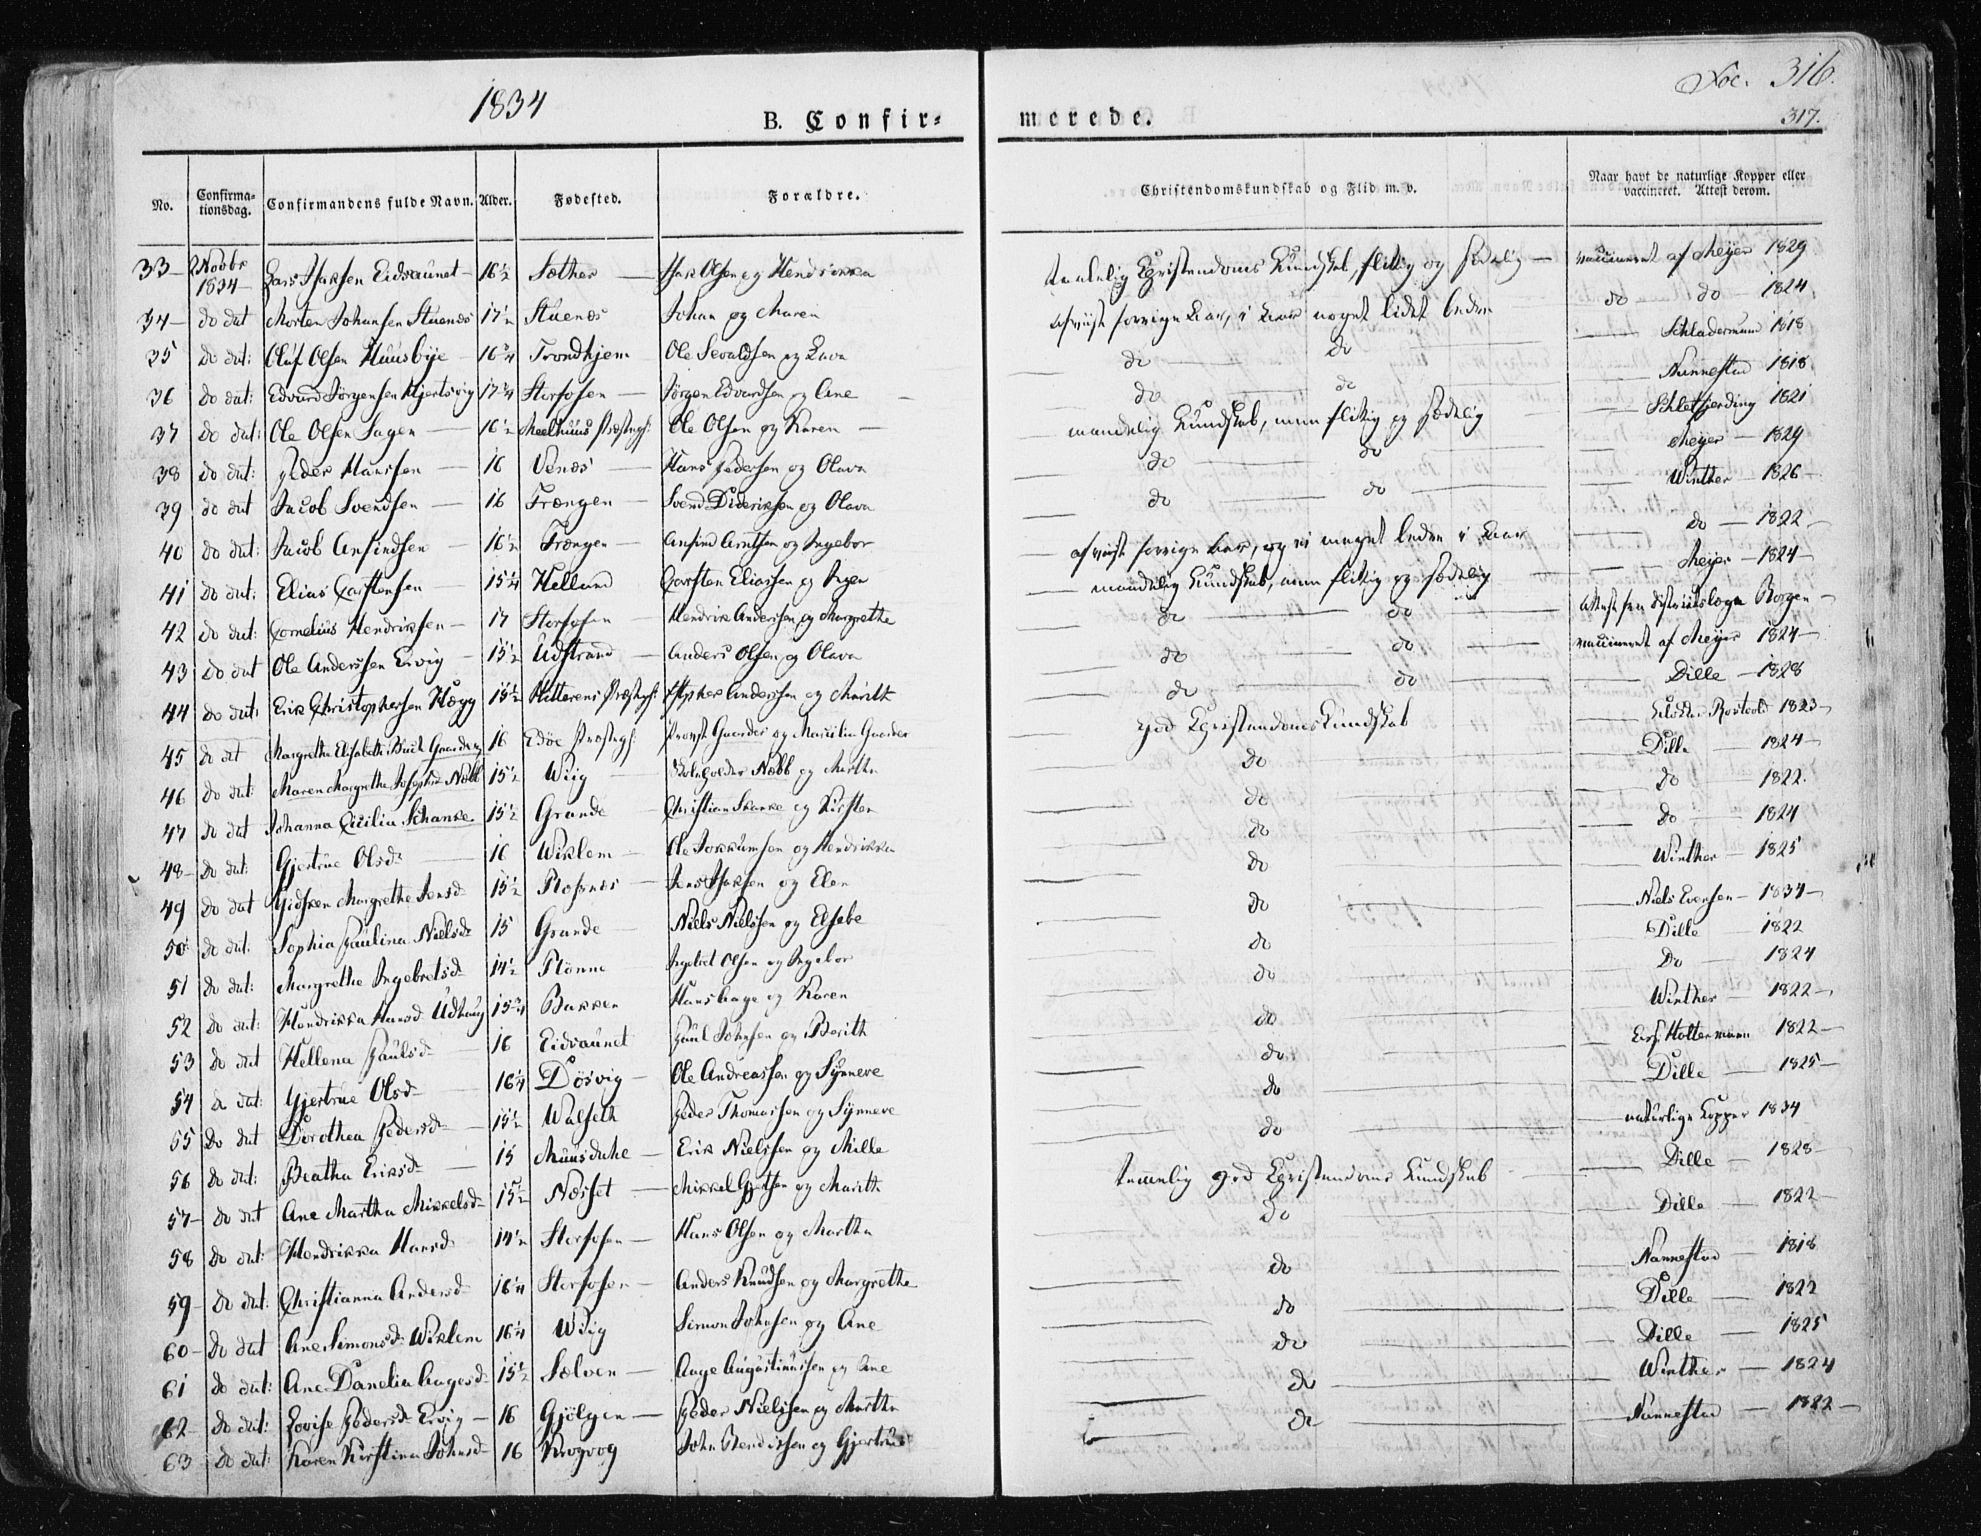 1834
B. Confir-
merede.
Foc. 316.
317.
No. Confirma-tionsdag. Confirmandens fulde Navn. Alder. Fødested. Forældre. Christendomskundskab og Flid m. v. Naar havt de naturlige Kopper eller vaccineret. Attest derom.
33 2 Novbr 1834 Lars Isaksen Eidsaunet 16½ Sæther Isak Olsen og Hendrikka Christendoms Kundskab, flittig og sædelig vaccineret af Meyer 1829
34 do dat Morten Johansen Stuenæs 17½ Stuenæs Johan og Maren do do 1824
35 do dat: Oluf Olsen Huusbye 16¾ Trondhjem Ole Sevaldsen og Lava do do Schladermund 1818
36 do dat: Edvard Jørgensen Hjertsvig 17¾ Storfosen Jørgen Edvardsen og Ane do do Nannestad 1818
37 do dat: Ole Olsen Sagen 16½ Meelhuus Præstegj: Ole Olsen og Karen maadelig Kundskab, men flittig og sædelig Schletfjerding 1821
38 do dat: Peder Hanssen 16 Venæs Hans Pedersen og Olava do do Meyer 1829
39 do dat Jacob Svendsen 16 Trængen Svend Dideriksen og Olava do do Winther 1826
40 do dat: Jacob Anfindsen 16½ Trængen Anfind Arntsen og Ingebor do 1822
41 do dat: Elias Carstensen 15¼ Helland Carsten Eliassen og Inger maadelig Kundskab, men flittig og sædelig Meyer 1824
42 do dat: Cornelius Hendriksen 17 Storfosen Hendrik Anderssen og Margrethe do do Attest fra Districtslæge Borgen
43 do dat Ole Anderssen Ervig 15½ Udstrand Anders Olsen og Olava do do vaccineret af Meyer 1824
44 do dat: Erik Christophersen Hægg 15½ Hitterens Præstegj: Anderssen og Marith do do Dille 1828
45 do dat Margretha Elisabeth Gaarder 16 Edøe Præstegj: Provst Gaarder og Gaarder god Christendomskundskab Rostvold 1823
46 do dat: Maren Margretha Josephine Nobb 15½ Wiig Nobb og Martha do Dille 1824
47 do dat Johanna Cicilia Schanke 15½ Grande Christian Skanke og Kirsten do do 1822
48 do dat: Gjertrue Olsd: 16 Wiklem Ole Jokkumsen og Hendrikka do do 1824
49 do dat Gidsken Margrethe Jensd 15½ Jens Isaksen og Elen do Winther 1825
50 do dat: Sophia Paulina Nielsd: 15 Grande Niels Nielssen og Elsebe do Niels Evensen 1834
51 do dat: Margrethe Ingebretsd: 14½ Rønne Ingebret Olsen og Ingebor do Dille 1822
52 do dat: Hendrikka Hansd Udhaug 15¾ Bakken Hans Aage og Karen do Do 1824
53 do dat Hellena Paulsd 16 Eidsaunet Paul Johnsen og Berith do Winther 1822
54 do dat: Gjertrue Olsd 16¼ Døsvig Ole Andreassen og Synneve do Holtermann 1822
55 Do dat Dorothea Pedersd 15½ Walseth Peder Thomassen og Synneve do Dille 1825
56 do dat: Beatha Eriksd 15 Muusdahl Erik Nielssen og Mille do naturlige Kopper 1834
57 do dat Ane Martha Mikkelsd 15½ Næsset Mikkel og Marith temmelig god Christendoms Kundskab Dille 1828
58 do dat: Hendrikka Hansd 14½ Storfosen Hans Olsen og Martha do Dille 1822
59 do dat: Christianna Andersd 16¼ Storfosen Anders Knudsen og Margrethe do Nannestad 1818
60 Do dat Ane Simonsd: Wiklem 16¼ Wiig Simon Johnsen og Ane do Dille 1822
61 do dat: Ane Danelia Aagesd 15½ Sælven Aage Augustinussen og Ane do Dille 1825
62 do dat: Lovise Pedersd Ervig 16 Gjølgen Peder Nielssen og Martha do Winther 1824
63 do dat: Karen Kirstina Johnsd 16 Krogvog John Bendissen og Gjertrue do Nannestad 1822